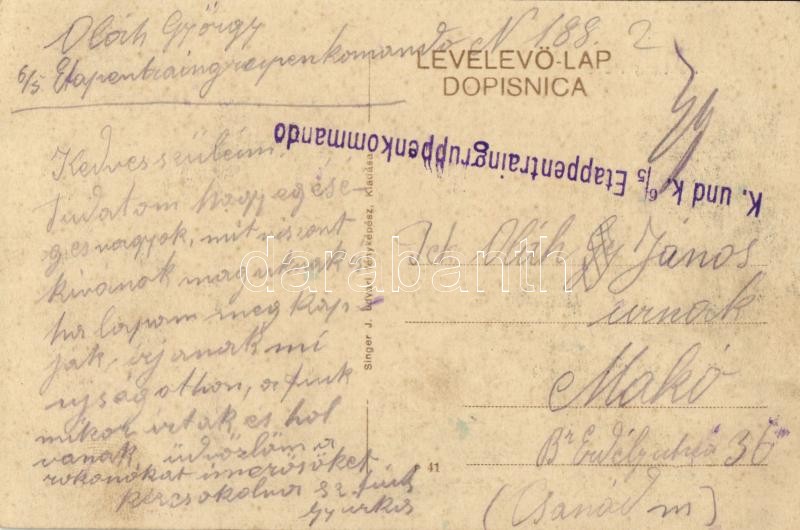 Oláh György
6/5 Etapentraingruppenkomando N 188. 2
LEVELEVŐ-LAP
DOPISNICA
K. und k. 6/5 Etappentraingruppenkommando
Kedves szüleim.
tudatom hogy egésé-
ges vagyok, mit viszont
kivánok maguknak
ha lapom meg kap-
ják, irjanak mi
ujság othon, a fiuk
mikor irtak es hol
vanak üdvözlöm a
rokonokat imerősöket
kezcsokolva sz. fiuk
Gyurka
Singer J. udvari fényképész, Kiadása
41
Oláh János
urnak
Makó
36
(Csanád m)
darabanth